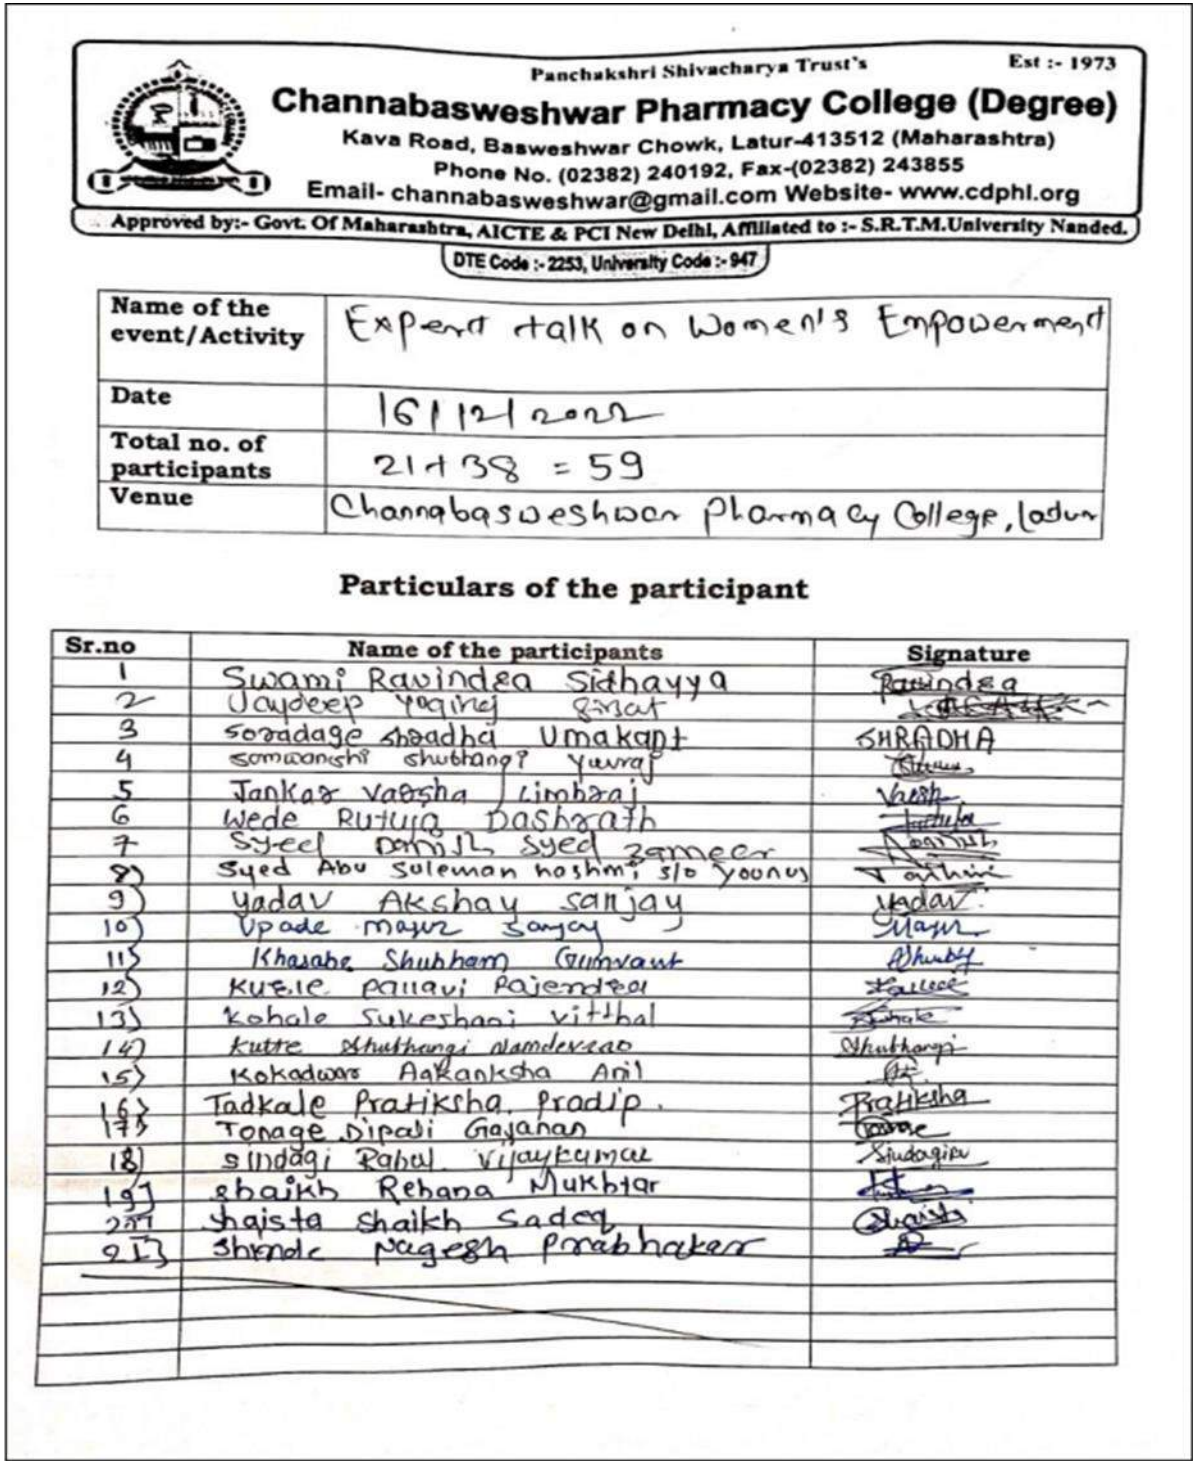 Panchakshri Shivacharya Trust's
Est :- 1973
Channabasweshwar Pharmacy College (Degree)
Kava Road, Basweshwar Chowk, Latur-413512 (Maharashtra)
Phone No. (02382) 240192, Fax-(02382) 243855
Email- channabasweshwar@gmail.com Website- www.cdphl.org
Approved by:- Govt. Of Maharashtra, AICTE & PCI New Delhi, Affiliated to :- S.R.T.M.University Nanded.
DTE Code :- 2253, University Code :- 947
Name of the event/Activity Expert talk on Women's Empowerment
Date 16/12/2022
Total no. of participants 21+38 = 59
Venue Channabasweshwar Pharmacy College, Latur
Particulars of the participant
Sr.no Name of the participants Signature
1 Swami Ravindra Sidhayya Ravindra
2 Jaydeep Yogiraj
3 Soradage Shradha Umakant SHRADHA
4 Somwanshi Shubhangi Yuvraj
5 Jankar Varsha Limbraj Varsha
6 Wede Rutuja Dashrath
7 Syed Danish Syed Zameer Danish
8) Syed Abu Suleman hashmi s/o Younus
9) Yadav Akshay Sanjay Yadav
10) Upade Mayur Sanjay Mayur
11) Khasabe Shubham Gunvant
12) Kurle Pallavi Rajendra
13) Kohale Sukeshani Vitthal
14) Kutte Shubhangi Namdevrao Shubhangi
15) Kokadwar Aakanksha Anil
16) Tadkale Pratiksha. Pradip. Pratiksha
17) Tonage Dipali Gajanan
18) Sindagi Rahul Vijaykumar
19] Shaikh Rehana Mukhtar
20] Shaista Shaikh Sadeq Shaista
21] Shinde Nagesh Prabhakar